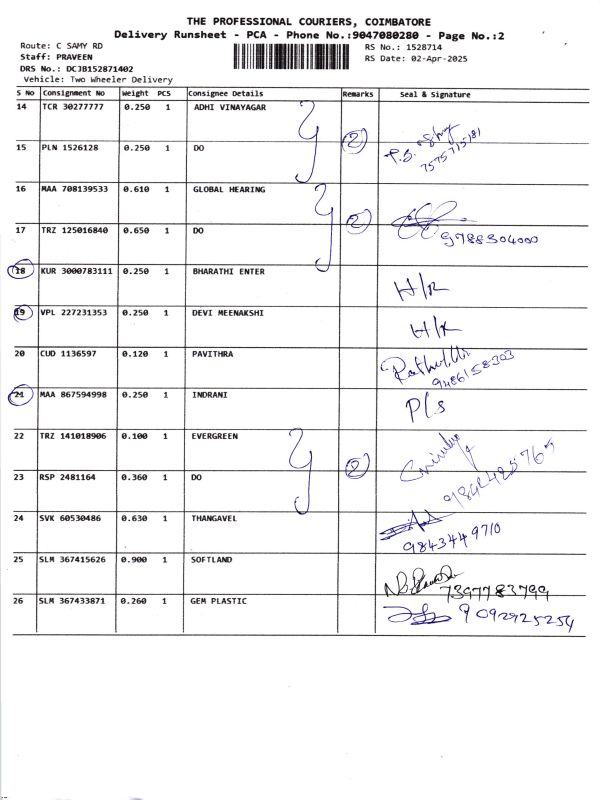 THE PROFESSIONAL COURIERS, COIMBATORE
Delivery Runsheet - PCA - Phone No.:9047080280 - Page No.:2
Route: C SAMY RD
RS No.: 1528714
Staff: PRAVEEN
RS Date: 02-Apr-2025
DRS No.: DCJB152871402
Vehicle: Two Wheeler Delivery
S No Consignment No Weight PCS Consignee Details Remarks Seal & Signature
14 TCR 30277777 0.250 1 ADHI VINAYAGAR
2
15 PLN 1526128 0.250 1 DO
16 MAA 708139533 0.610 1 GLOBAL HEARING
2
17 TRZ 125016840 0.650 1 DO 9788304000
18 KUR 3000783111 0.250 1 BHARATHI ENTER H/R
19 VPL 227231353 0.250 1 DEVI MEENAKSHI H/R
20 CUD 1136597 0.120 1 PAVITHRA 9486158303
21 MAA 867594998 0.250 1 INDRANI P/s
22 TRZ 141018906 0.100 1 EVERGREEN
2
23 RSP 2481164 0.360 1 DO
24 SVK 60530486 0.630 1 THANGAVEL 9843449710
25 SLM 367415626 0.900 1 SOFTLAND 7397783799
26 SLM 367433871 0.260 1 GEM PLASTIC 9092925254